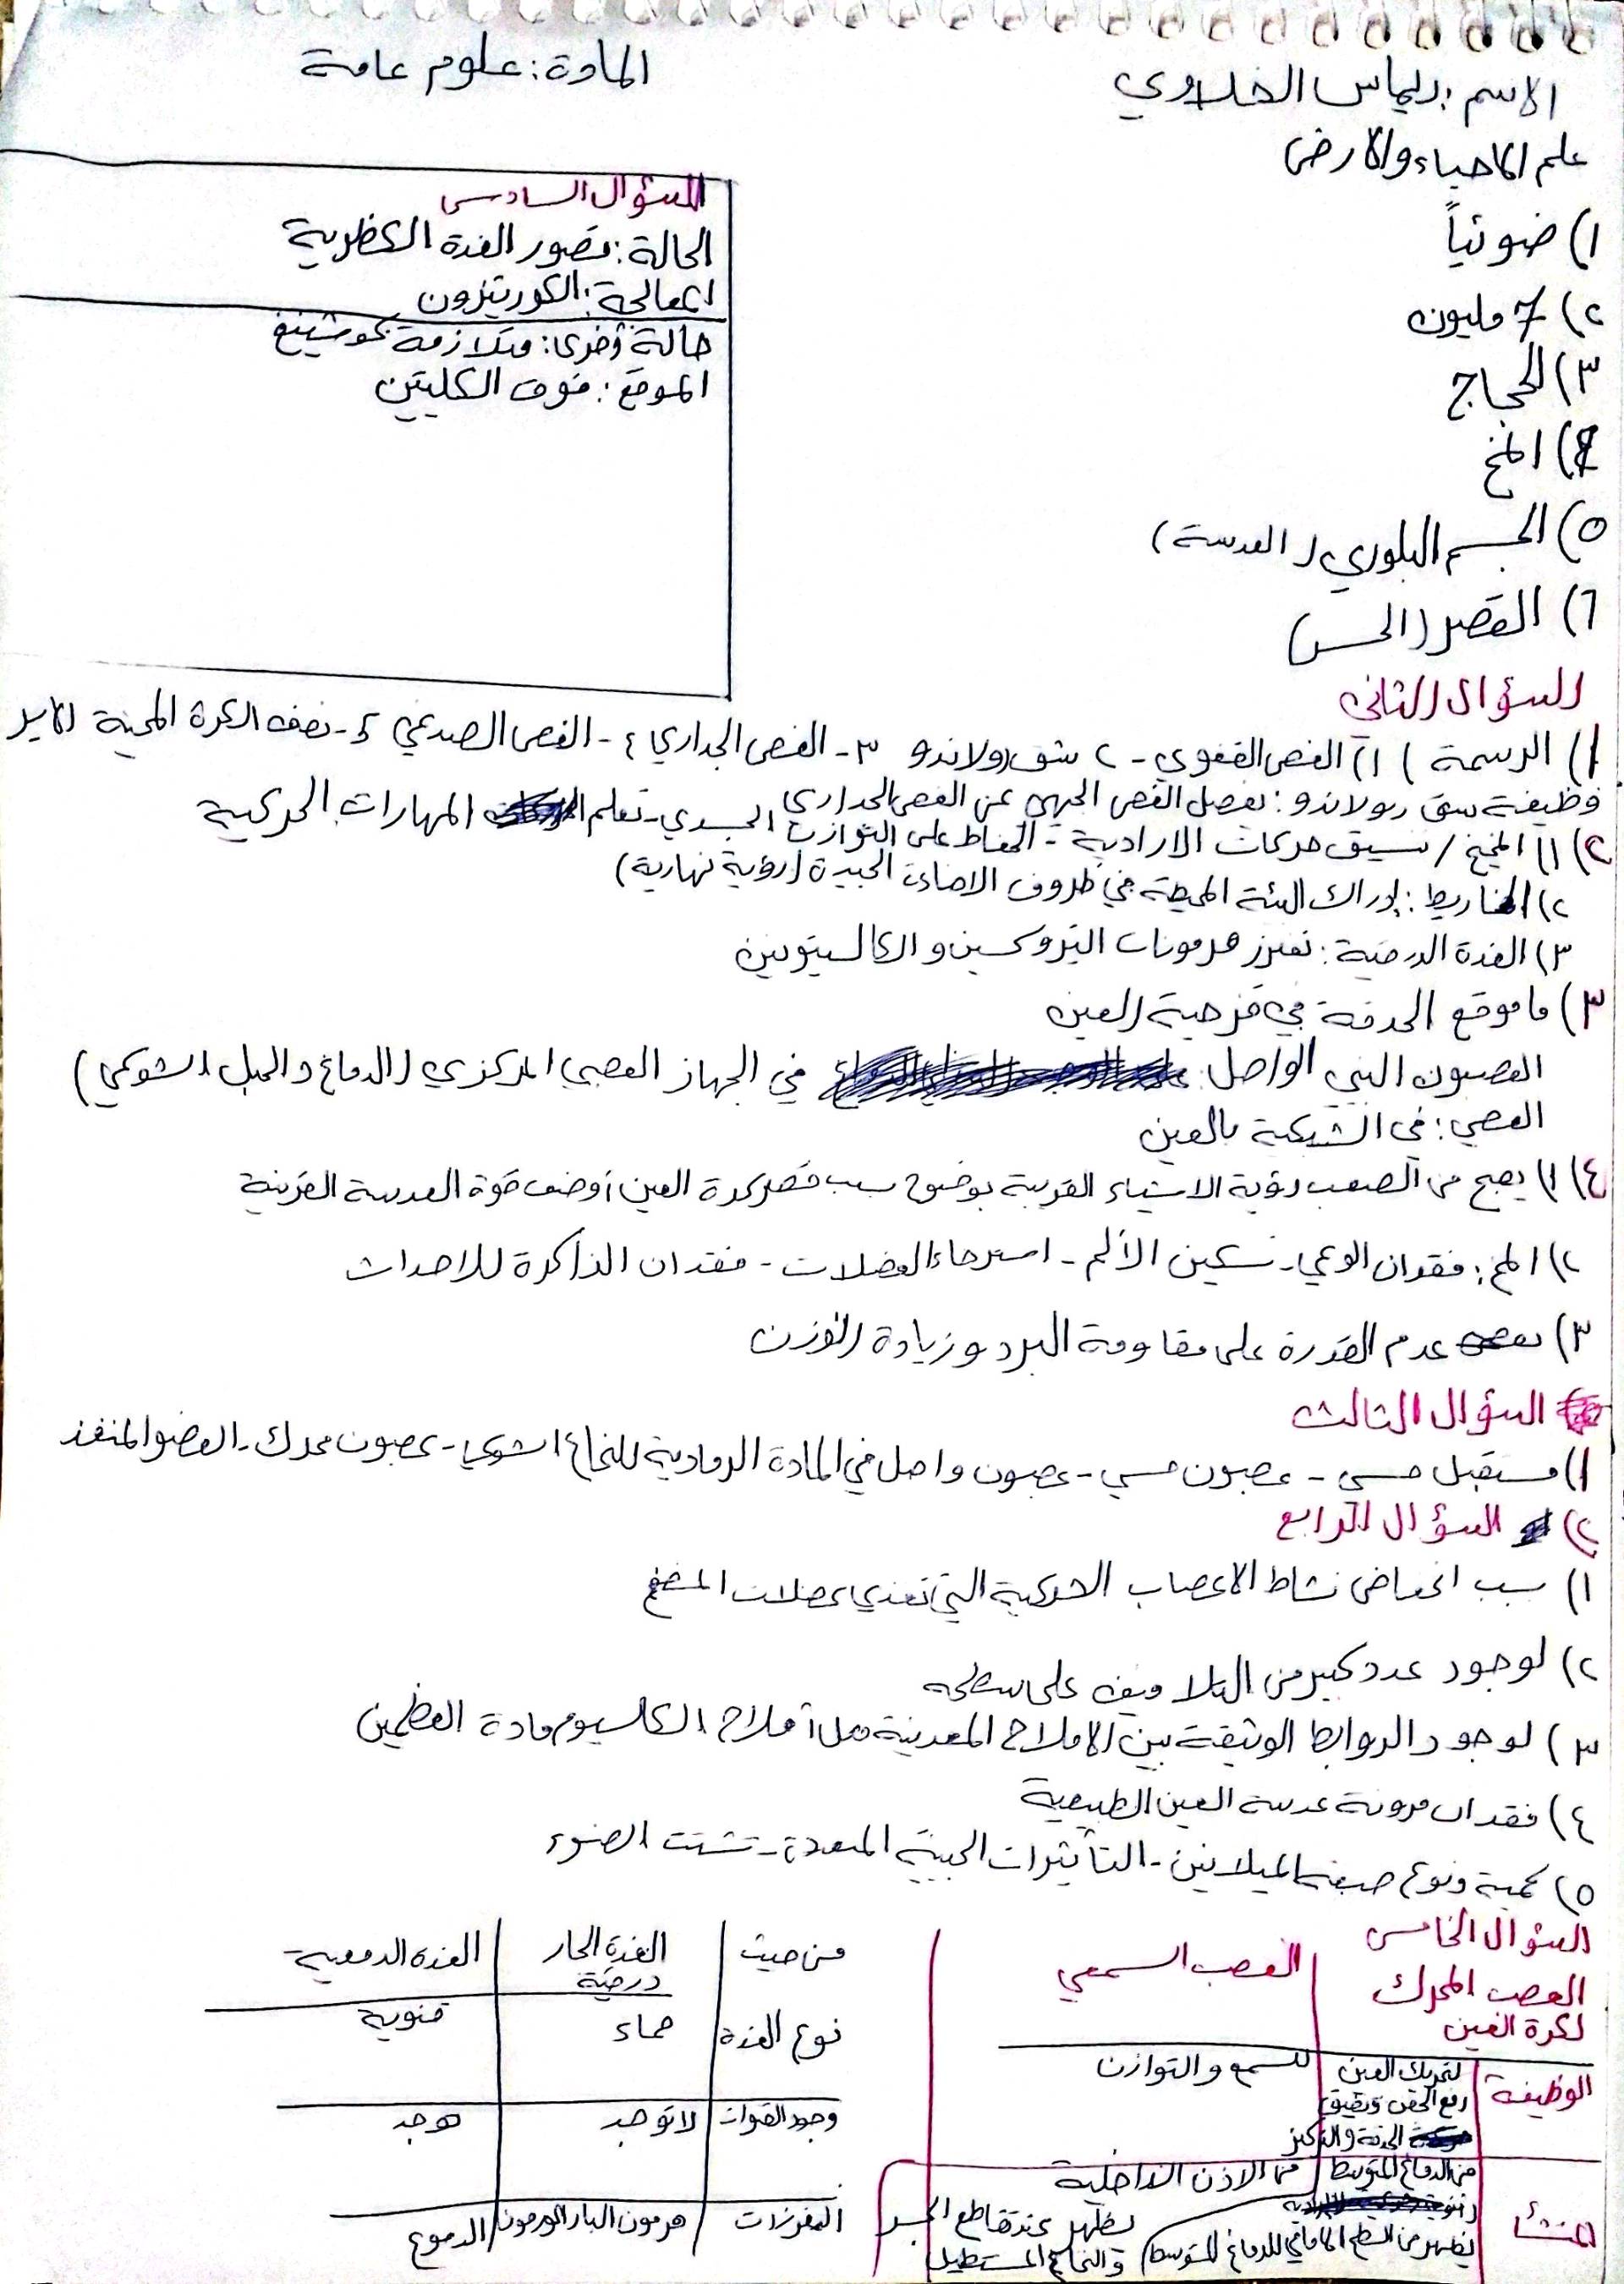 الاسم: ديماس الخلاوي
المادة: علوم عامة
علم الاحياء والارض
١) ضوئياً
٢) 7 مليون
٣) الحجاج
٤) المخ
٥) الجسم البلوري (العدسة)
٦) القصر (الحسر)
السؤال السادس
الحالة: قصور الغدة الكظرية
المعالجة: الكورتيزون
حالة أخرى: متلازمة كوشينغ
الموقع: فوق الكليتين
السؤال الثاني
١) الرسمة) ١) الفص القفوي - ٢ شق رولاندو ٣- الفص الجداري ٤- الفص الصدغي ٥- نصف الكرة المخية الايسر
وظيفة شق رولاندو: يفصل الفص الجبهي عن الفص الجداري
٢) ١) المخيخ / تنسيق حركات الارادية - الحفاظ على التوازن الجسدي - تعلم المهارات الحركية
٢) المخاريط: إدراك البيئة المحيطة في ظروف الاضاءة الجيدة (رؤية نهارية)
٣) الغدة الدرقية: تفرز هرمونات التيروكسين و الكالسيتونين
٣) ما موقع الحدقة في قزحية العين
العصبون البيني الواصل: في الجهاز العصبي المركزي (الدماغ والحبل الشوكي)
العصي: في الشبكية بالعين
٤) ١) يصبح من الصعب رؤية الاشياء القريبة بوضوح بسبب قصر كرة العين أو ضعف قوة العدسة القرنية
٢) المخ: فقدان الوعي - تسكين الألم - استرخاء العضلات - فقدان الذاكرة للاحداث
٣) عدم القدرة على مقاومة البرد و زيادة الوزن
السؤال الثالث
١) مستقبل حسي - عصبون حسي - عصبون واصل في المادة الرمادية للنخاع الشوكي - عصبون محرك - العضو المنفذ
٢) السؤال الرابع
١) بسبب انخفاض نشاط الاعصاب الحركية التي تغذي عضلات المضغ
٢) لوجود عدد كبير من التلافيف على سطحه
٣) لوجود الروابط الوثيقة بين الاملاح المعدنية مثل أملاح الكالسيوم ومادة العظمين
٤) فقدان مرونة عدسة العين الطبيعية
٥) كمية ونوع صبغة الميلانين - التأثيرات الجينية المتعددة - تشتت الضوء
السؤال الخامس
العصب المحرك لكرة العين | العصب السمعي
الوظيفة | لتحريك العين رفع الجفن وتضيق الحدقة والتركيز | للسمع و التوازن
المنشأ | من الدماغ المتوسط | من الاذن الداخلية
يظهر من السطح الامامي للدماغ المتوسط | يظهر عند تقاطع الجسر والنخاع المستطيل
من حيث | الغدة الجار درقية | الغدة الدمعية
نوع الغدة | صماء | قنوية
وجود القنوات | لا توجد | توجد
المفرزات | هرمون الباراثورمون | الدموع